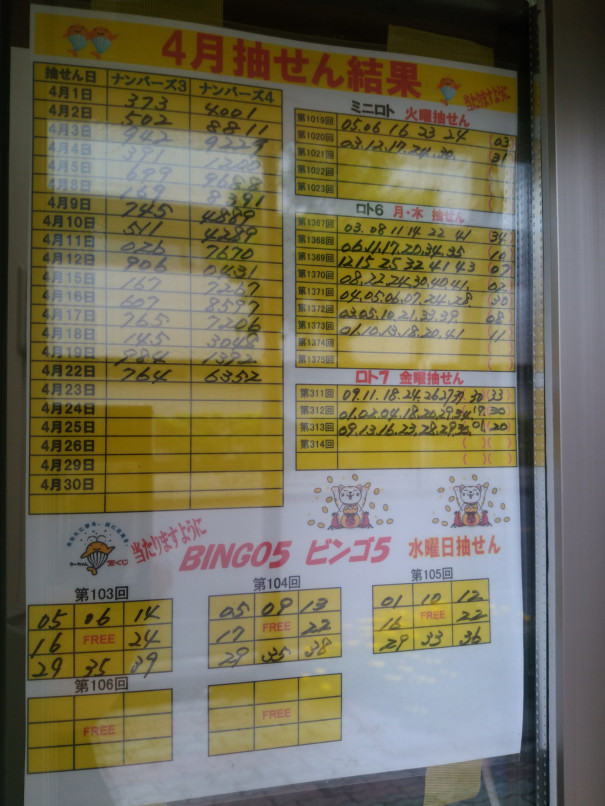 4月抽せん結果
当たりますように
抽せん日 ナンバーズ3 ナンバーズ4
4月1日 373 4001
4月2日 502 8811
4月3日 942 9229
4月4日 391
4月5日 699 9688
4月8日 169 8391
4月9日 745 4889
4月10日 511 4289
4月11日 026 7670
4月12日 906 0431
4月15日 167 7267
4月16日 607 8597
4月17日 765 7206
4月18日 145 3048
4月19日 984 1392
4月22日 764 6352
4月23日
4月24日
4月25日
4月26日
4月29日
4月30日
ミニロト 火曜抽せん
第1019回 05.06 16 23 24 (03)
第1020回 03.12.17.24.30 (31)
第1021回 ( )
第1022回 ( )
第1023回 ( )
ロト6 月・木 抽せん
第1367回 03.08 11 14 22 41 (34)
第1368回 06.11.17.20.34.35 (10)
第1369回 12 15 25 32 41 43 (07)
第1370回 08.22.24.30.40.41 (02)
第1371回 04.05.06.07.24.28 (30)
第1372回 03.05.10.21.33.39 (08)
第1373回 01.10.13.18.20.41 (11)
第1374回 ( )
第1375回 ( )
ロト7 金曜抽せん
第311回 09.11.18.24.26 27 31 (30)(33)
第312回 01.02.04.18.20.29.34 (19)(30)
第313回 09.13.16.23.28.29 (01)(20)
第314回 ( )( )
( )( )
宝くじ
当たりますように
BINGO5 ビンゴ5 水曜日抽せん
第103回
05 06 14
16 FREE 24
29 35 39
第104回
05 09 13
17 FREE 22
29 35 38
第105回
01 10 12
16 FREE 22
29 33 36
第106回
FREE
FREE